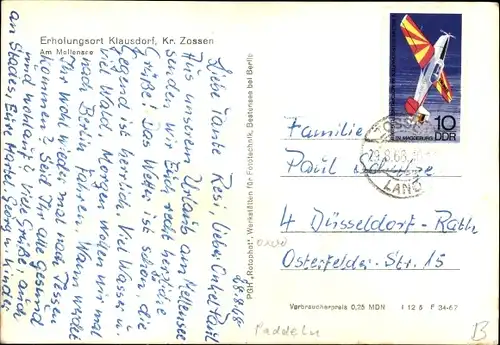 Erholungsort Klausdorf, Kr. Zossen
Am Mellensee
28.8.68
Liebe Tante Resi, lieber Onkel Paul
Aus unserem Urlaub am Mellensee
senden wir Euch recht herzliche
Grüße! Das Wetter ist schön, die
Gegend ist herrlich. Viel Wasser u.
viel Wald. Morgen wollen wir mal
nach Berlin fahren. Wann werdet
Ihr wohl wieder mal nach Jessen
kommen? Seid Ihr alle gesund
und wohlauf? Viele Grüße, auch
an Stades, Eure Martel, Georg u. Kinder.
PGH „Rotophot", Werkstätten für Fototechnik, Bestensee bei Berlin
10
DDR
MAGDEBURG
ZOSSEN
8.68
LAND
Familie
Paul
4 Düsseldorf-Rath
Osterfelder-Str. 15
Verbraucherpreis 0,25 MDN I 12 5 F 34-67
Paddeln
B